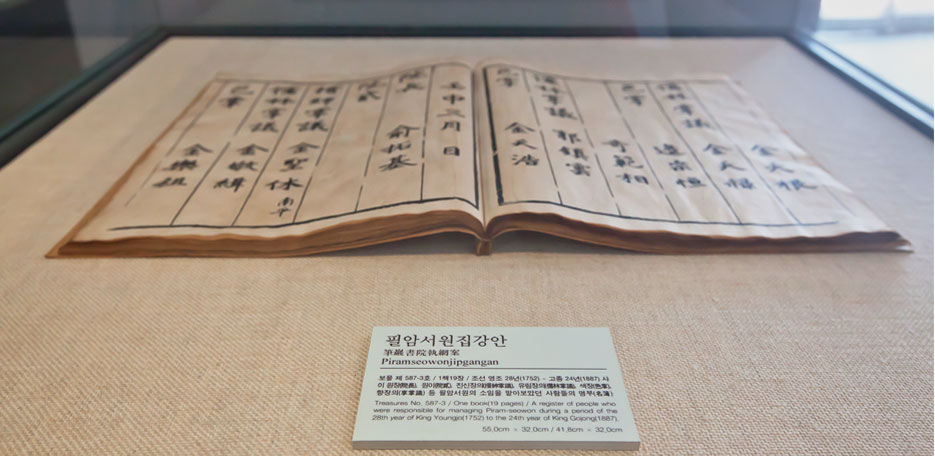 金大根
儒林掌議 金大
色掌 邊宗恒
奇範相
儒林掌議 郭鎮雲
色掌 金天浩
壬申三月 日
院長 兪拓基
院貳
搢紳掌議 金聖休 南平
儒林掌議 金敏
色掌 金樂祖
필암서원집강안
筆巖書院執綱案
Piramseowonjipgangan
보물 제 587-3호 / 1책19장 / 조선 영조 28년(1752) – 고종 24년(1887) 사
이 원장(院長), 원이(院貳), 진신장의(搢紳掌議), 유림장의(儒林掌議), 색장(色掌),
향장의(享掌議) 등 필암서원의 소임을 맡아보았던 사람들의 명부(名簿)
Treasures No. 587-3 / One book(19 pages) / A register of people who
were responsible for managing Piram-seowon during a period of the
28th year of King Youngjo(1752) to the 24th year of King Gojong(1887).
55.0cm × 32.0cm / 41.8cm × 32.0cm